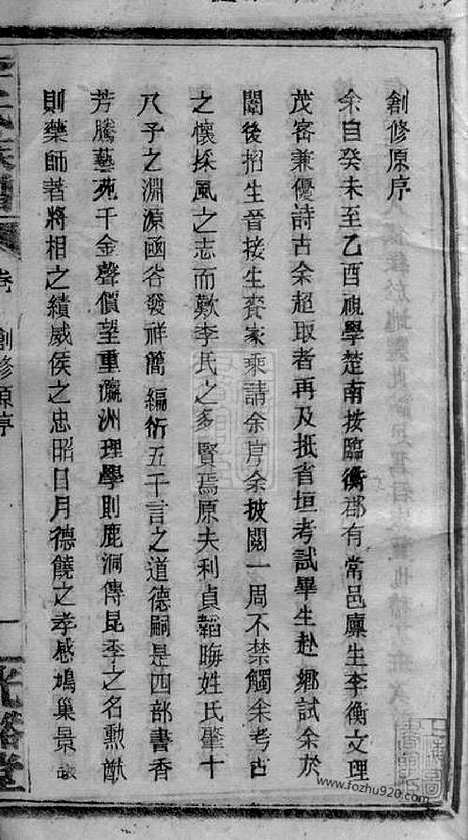 創修原序
余自癸未至乙酉視學楚南按臨衡郡有常邑廪生李衡文理
茂密兼優詩古余超取者再及抵省垣考試畢生赴鄉試余於
闈後招生晉接生賫家乘請余序余披閱一周不禁觸余考古
之懷採風之志而歎李氏之多賢焉原夫利貞韜晦姓氏肇十
八子之淵源函谷發祥簡編衍五千言之道德嗣是四部書香
芳騰藝苑千金聲價望重瀛洲理學則鹿洞傳昆季之名勳猷
則藥師著將相之績威侯之忠昭日月德饒之孝感鳩巢景
氏族譜
卷
創修原序
一
堂
www.fozhu920.com